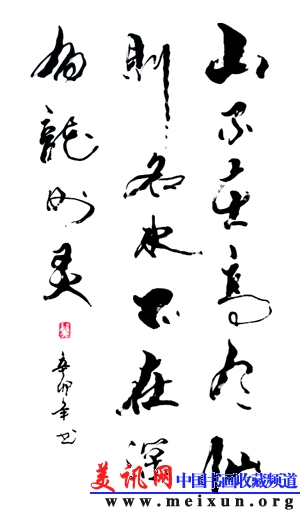 山不在高有仙
則名水不在深
有龍则灵
辛卯年书
美讯网 中国书画收藏频道
www.meixun.org